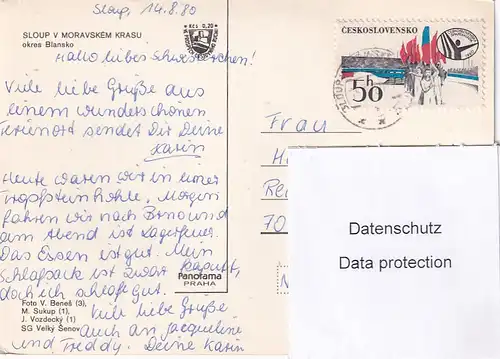 Sloup, 14.8.80
SLOUP V MORAVSKÉM KRASU
okres Blansko
Kčs 0,20
Hallo liebes Schwesterchen!
Viele liebe Grüße aus
einem wunderschönen
Ferienort sendet Dir Deine
Karin
Heute waren wir in einer
Tropfsteinhöhle. Morgen
fahren wir nach Brno und
am Abend ist Lagerfeuer.
Das Essen ist gut. Mein
Schlafsack ist zwar kaputt,
doch ich schlafe gut.
Viele liebe Grüße
auch an Jacqueline
und Freddy. Deine Karin
Panorama
PRAHA
Foto V. Beneš (3),
M. Sukup (1),
J. Vozdecký (1)
SG Velký Šenov
ČESKOSLOVENSKO
50h
SLOUP
Frau
H
Re
70
N
Datenschutz
Data protection